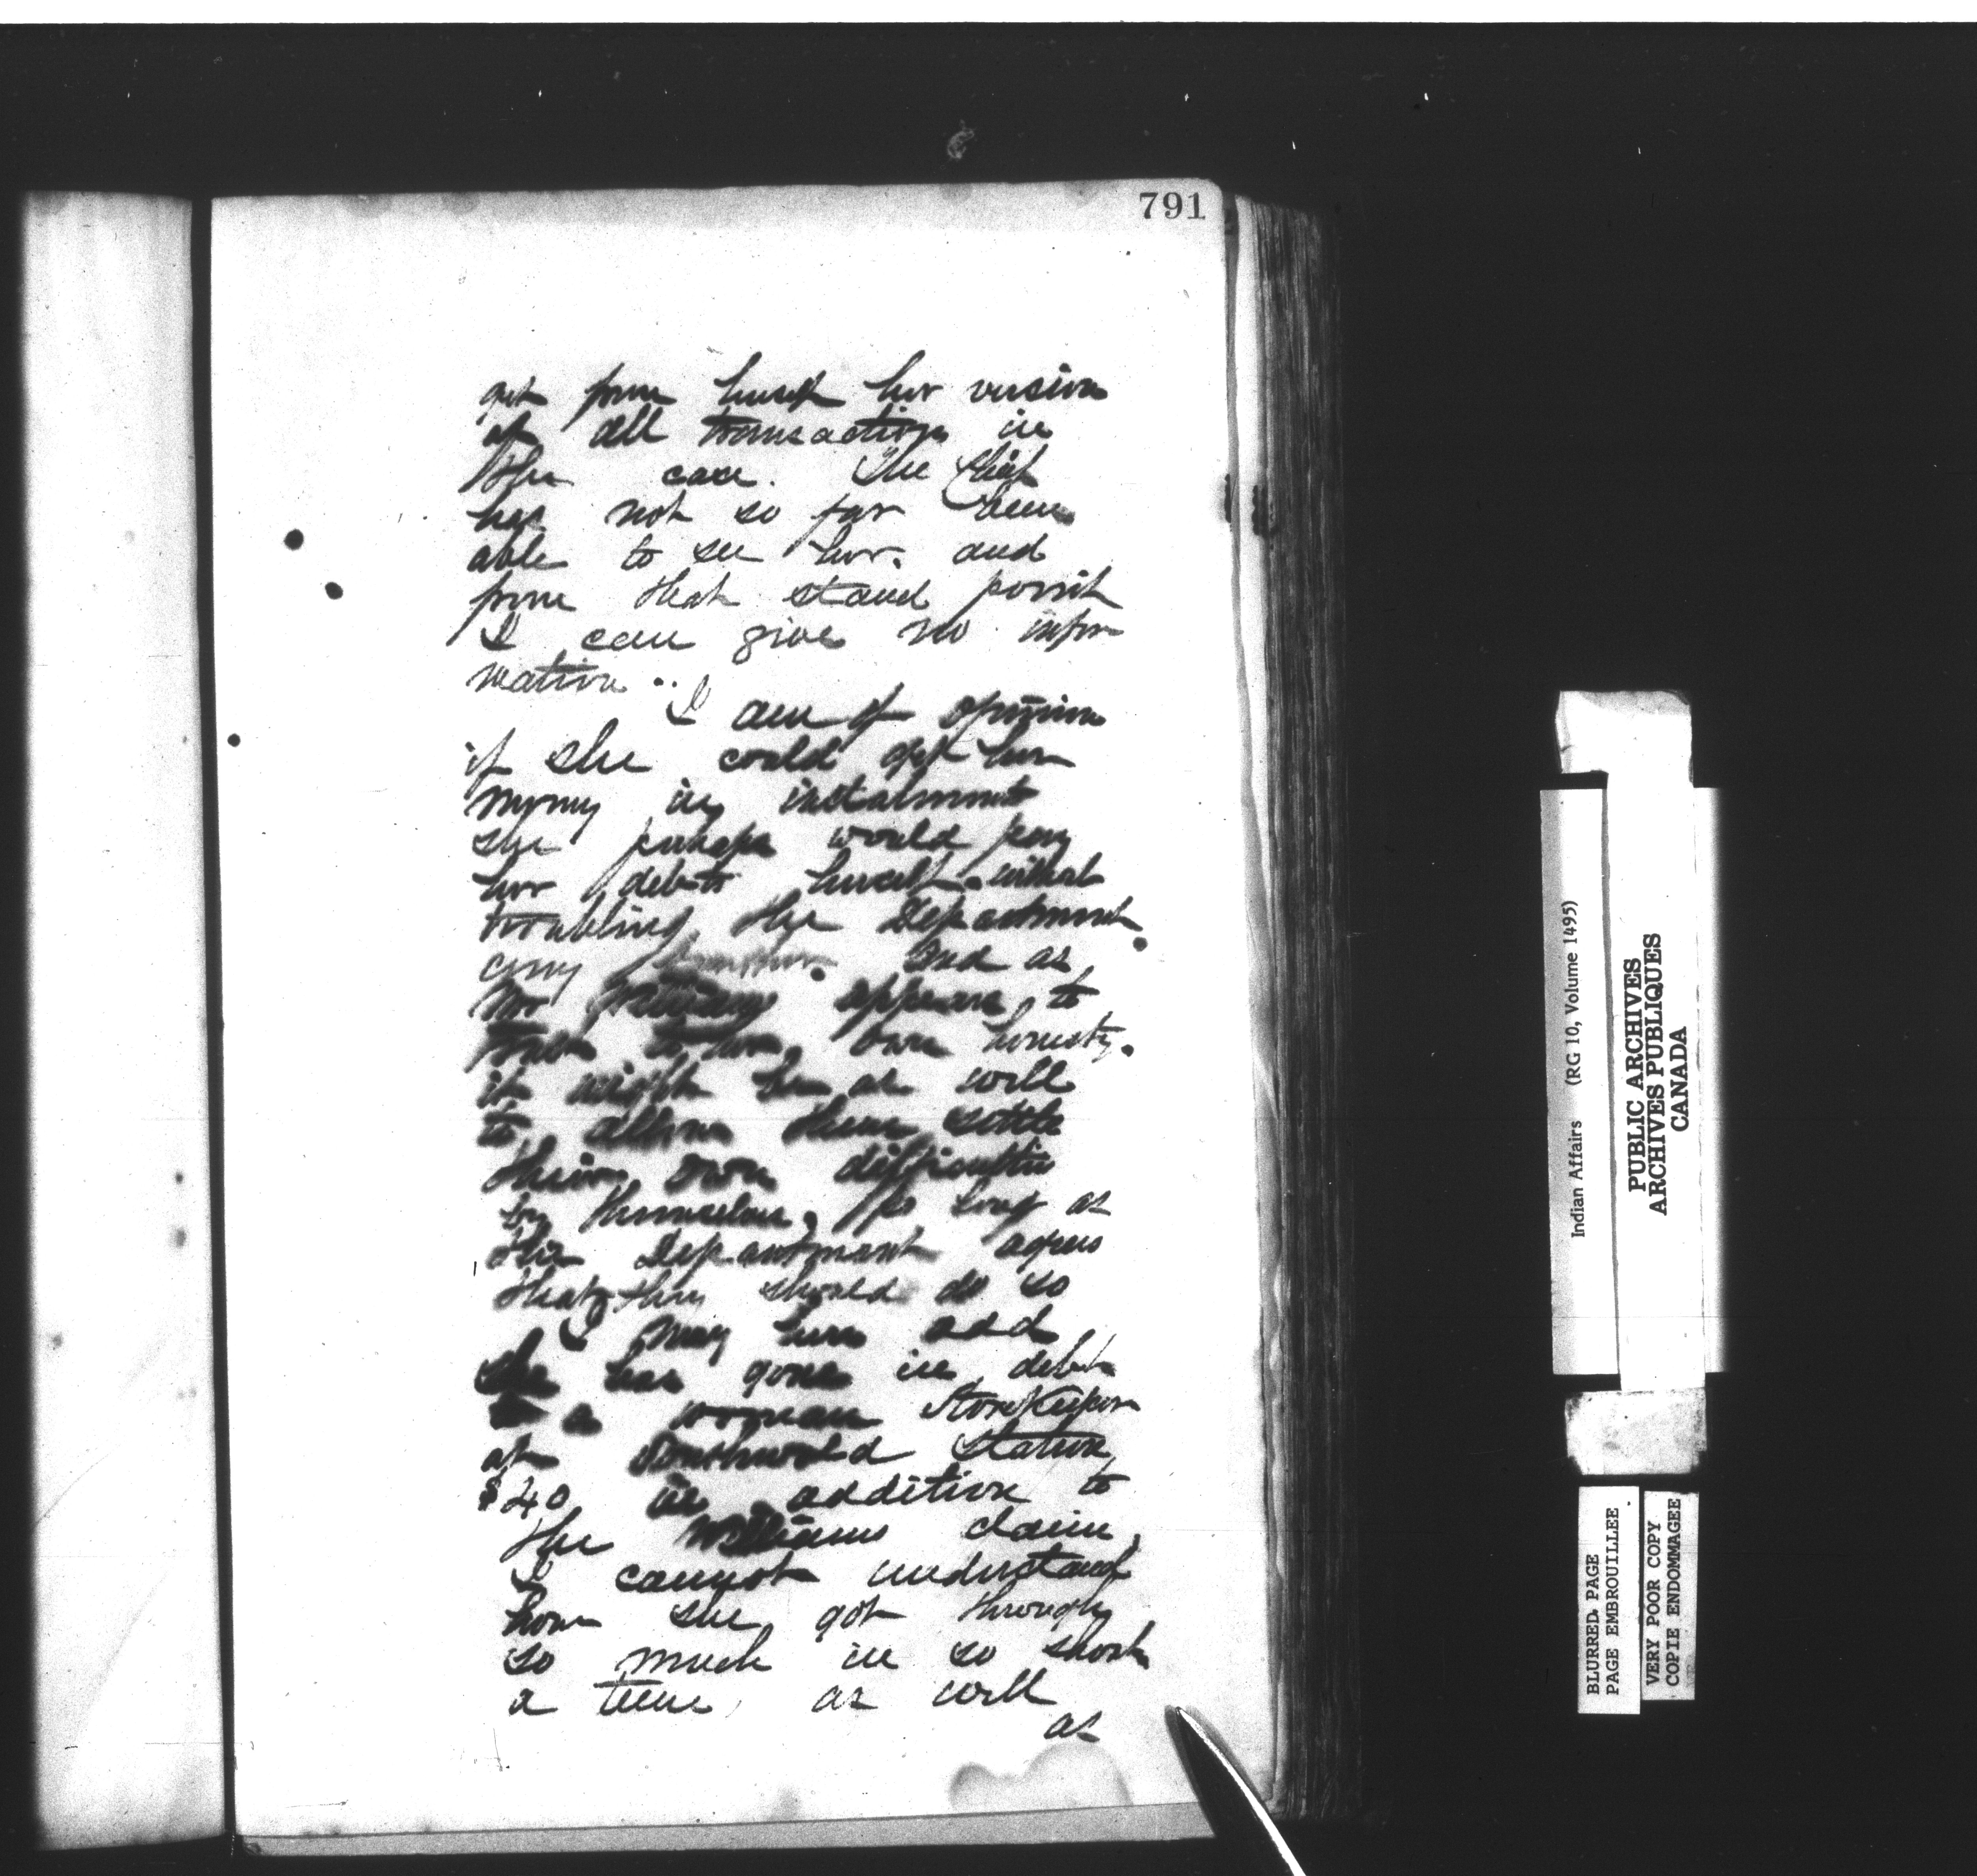 791
get from herself her version
of all transactions in
the case. The Chief
has not so far been
able to see her. and
from that stand point
I can give no infor
mation.
I am of opinion
if she could get her
money in instalments
she perhaps would pay
her debts herself without
troubling the Department
any further. And as
Mr Williams appears to
trust to her own honesty.
it might be as well
to allow them settle
their own difficulties
by themselves, so long as
the Department agrees
that they should do so
I may here add
she has gone in debt
to a woman Storekeeper
at Southwold Station
$40 in addition to
the Williams claim,
I cannot understand
how she got through
so much in so short
a time, as well
as
Indian Affairs (RG 10, Volume 1495)
PUBLIC ARCHIVES
ARCHIVES PUBLIQUES
CANADA
BLURRED PAGE
PAGE EMBROUILLEE
VERY POOR COPY
COPIE ENDOMMAGEE